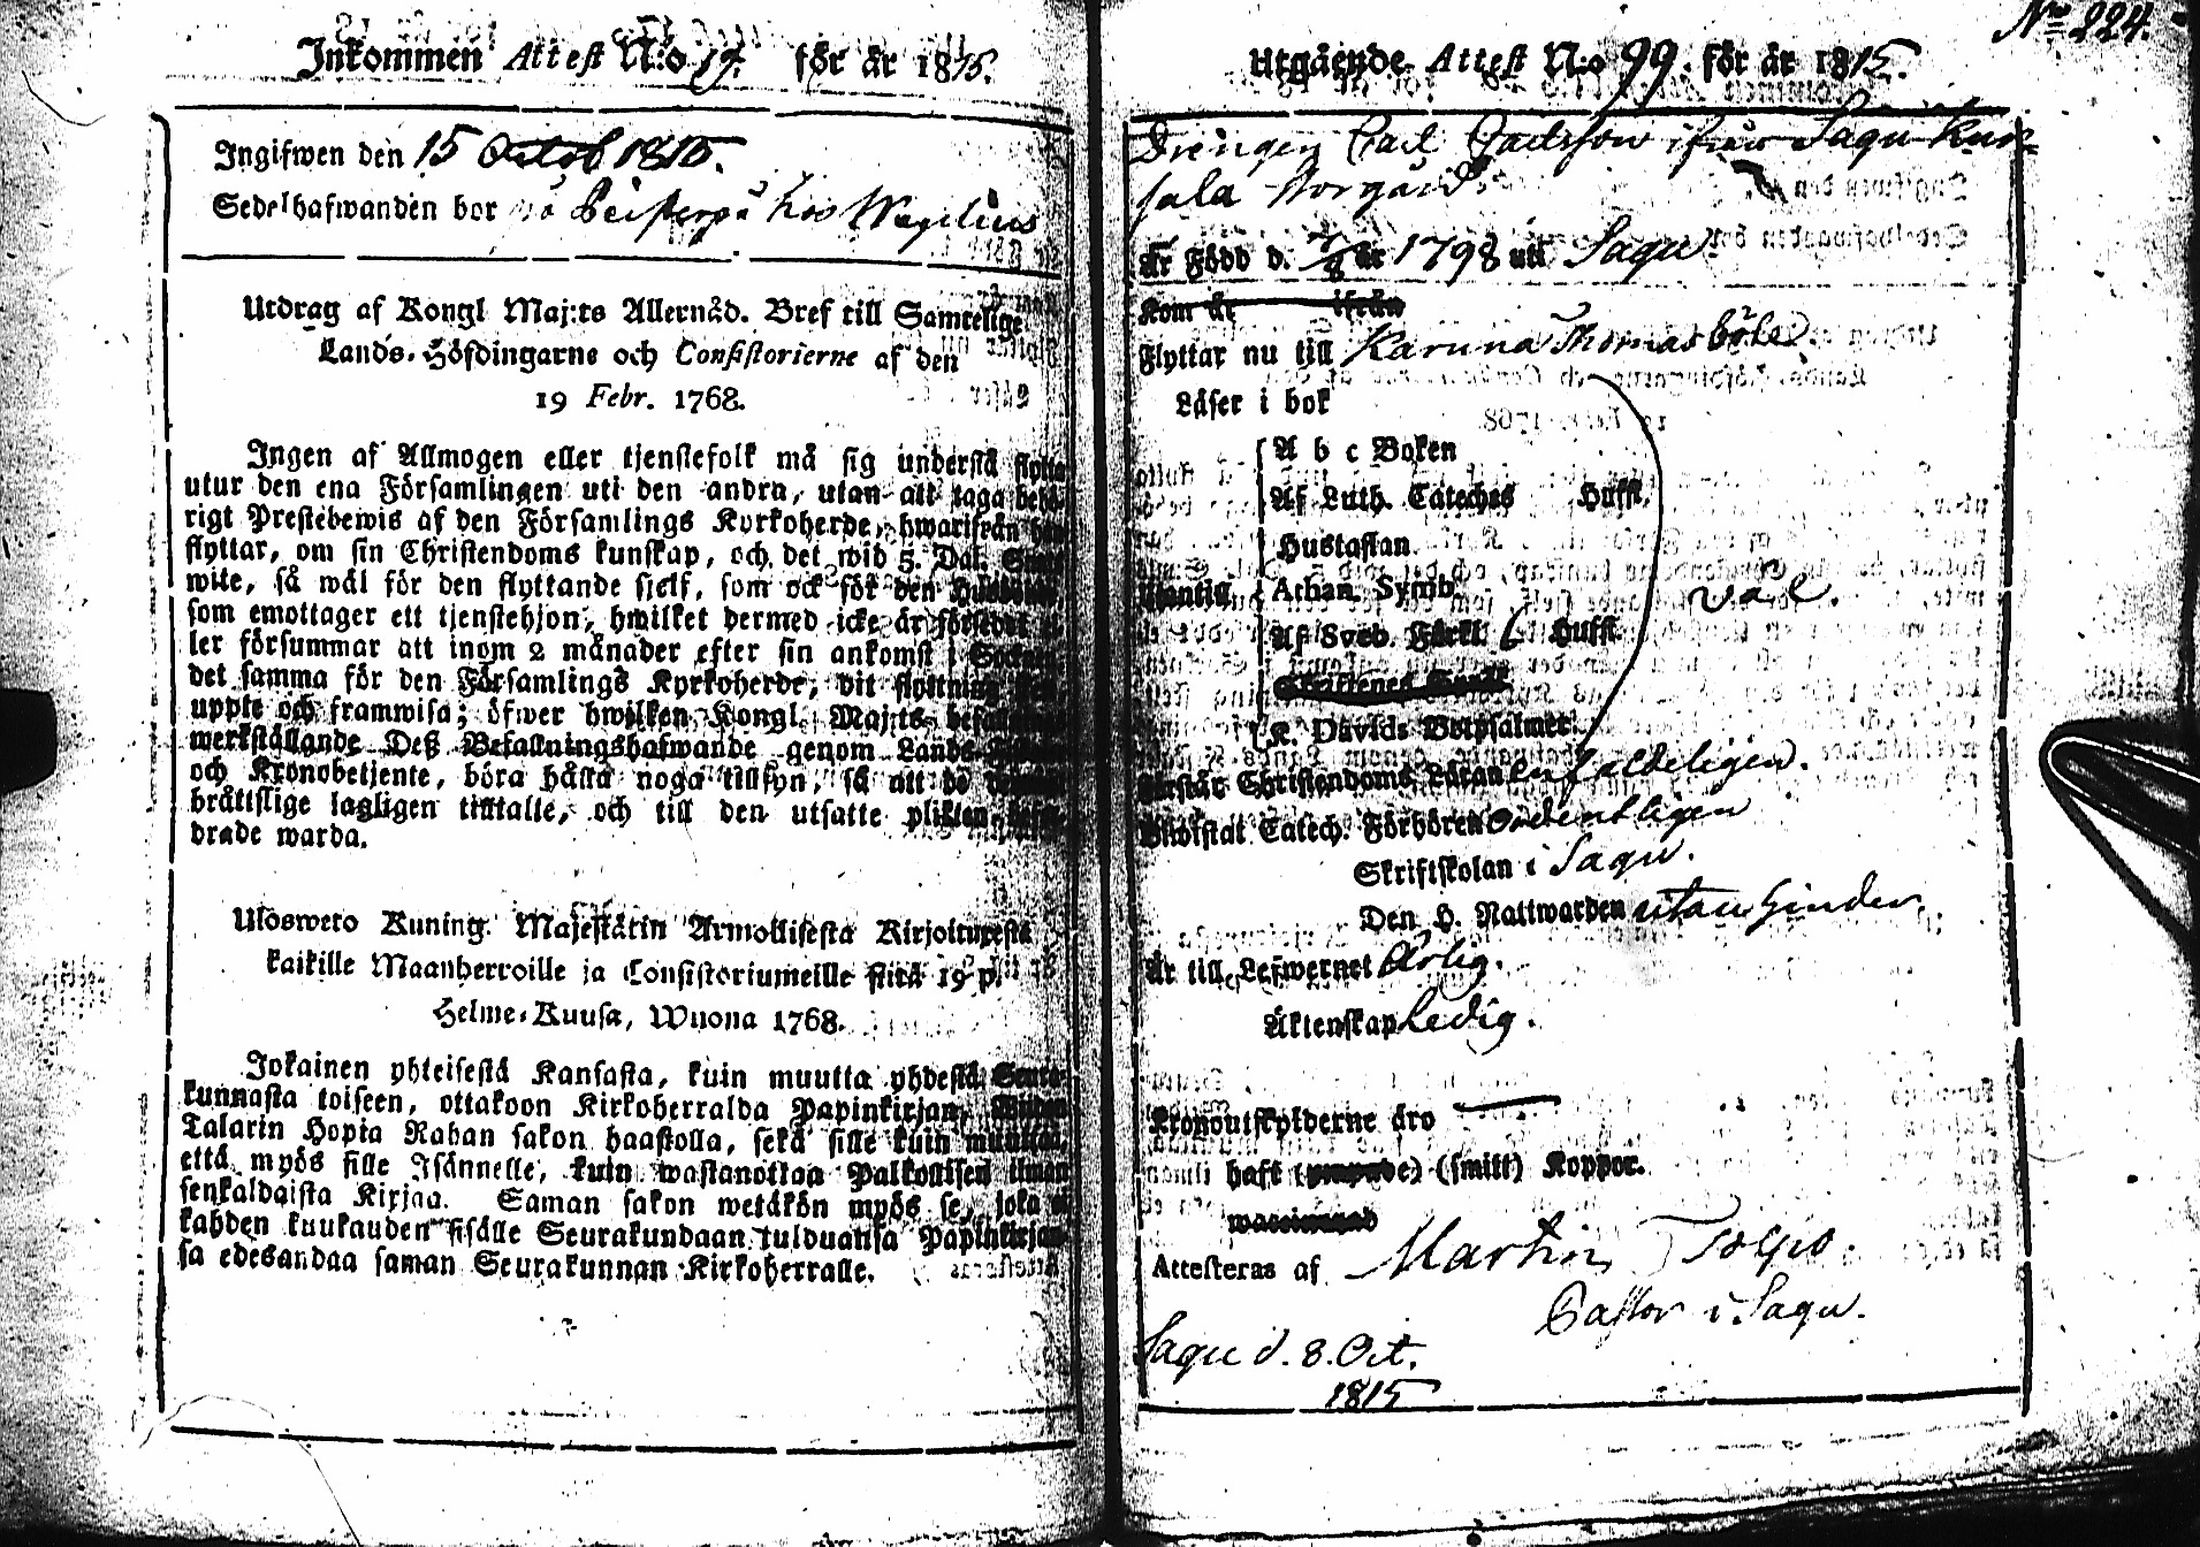 Inkommen Attest N:o 17. för år 1815.
Ingifwen den 15 Octob 1815.
Sedelhafwanden bor hos Wagelius
Utdrag af Kongl Maj:ts Allernåd. Bref till Samtelige
Lands-Höfdingarne och Consistorierne af den
19 Febr. 1768.
Ingen af Allmogen eller tjenstefolk må sig understå flytta
utur den ena Församlingen uti den andra, utan att taga behö-
rigt Prestebewis af den Församlings Kyrkoherde, hwarifrån han
flyttar, om sin Christendoms kunskap, och det wid 5. Dal. Smts
wite, så wäl för den flyttande sjelf, som ock för den Husbonde,
som emottager ett tjenstehjon, hwilket dermed icke är försedt el-
ler försummar att inom 2 månader efter sin ankomst i Socknen
det samma för den Församlings Kyrkoherde, dit flyttning sker,
uppte och framwisa; öfwer hwilken Kongl. Maj:ts befallnings
werkställande Deß Befallningshafwande genom Lands-
och Kronobetjente, böra hålla noga tillsyn, så att de
bråttslige lagligen tilltalte, och till den utsatte plikten befor-
drade warda.
Ulosweto Kuning. Majestätin Armollisesta Kirjoituxesta
kaikille Maanherroille ja Consistoriumeille siitä 19 p.
Helme-Kuusa, Wuona 1768.
Jokainen yhteisestä Kansasta, kuin muutta yhdestä Seura-
kunnasta toiseen, ottakoon Kirkoherralda Papinkirjan, Wiiden
Talarin Hopia Rahan sakon haastolla, sekä sille kuin muuttaa,
että myös sille Isännelle, kuin wastanottaa Palkollisen ilman
senkaldaista Kirjaa. Saman sakon wetäkön myös se, joka ei
kahden kuukauden sisälle Seurakundaan tulduansa Papinkirjan-
sa edesandaa saman Seurakunnan Kirkoherralle.
No 224.
Utgående Attest N:o 99. för år 1815.
Drengen Carl Carlsson ifrån Sagu Kur-
sala Norgård.
Är Född d. 7/8 år 1798 uti Sagu
Kom år ifrån
Flyttar nu till Karuna Thomasböle
Läser i bok
A b c Boken
Af Luth. Cateches Hufst.
Hustaflan
Utantill Athan. Symb. väl.
Af Sveb. Förkl. 6 Hufst.
K. Davids Botpsalmer
Förstår Christendoms Läran enfaldeligen.
Biwistat Catech. Förhören ordentligen
Skriftskolan i Sagu.
Den H. Nattwarden utan hinder
Är till Lefwernet Ärlig.
Äktenskap Ledig.
Kronoutskylderne äro —
haft (smitt) Koppor.
Attesteras af Martin Tolpo
Pastor i Sagu.
Sagu d. 8. Oct.
1815